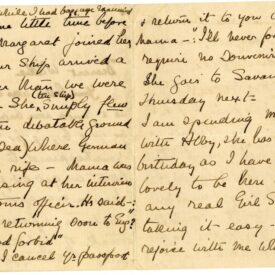 while I had baggage examined
me little time before
Margaret joined her
our Ship arrived a
than we were
(the Ship)
She, simply flew
the debatable ground
Sea) where German
rife - Mama was
ing at her interview
officer. He said -:
returning soon to Eng?"
forbid"
I cancel yr passport
& return it to you
Mama -: "I'll never fo
require no Souvenir
She goes to Savan
Thursday next -
I am spending m
with she has
birthday as I have
lovely to be here
any real Girl S
talking it easy -
rejoice with me wh